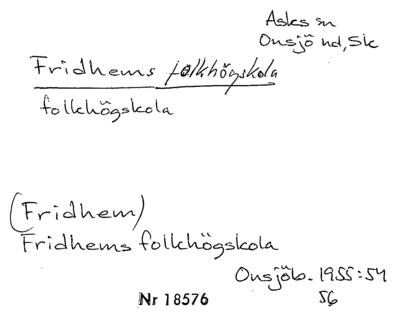 Asks sn
Onsjö hd, Sk
Fridhems folkhögskola
folkhögskola
(Fridhem)
Fridhems folkhögskola
Onsjöb. 1955:54
56
Nr 18576